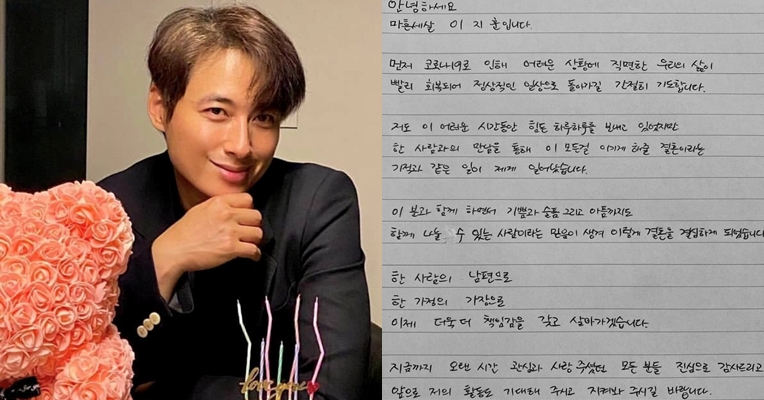 안녕하세요
마흔세살 이지훈입니다.
먼저 코로나19로 인해 어려운 상황에 직면한 우리의 삶이
빨리 회복되어 정상적인 일상으로 돌아가길 간절히 기도합니다.
저도 이 어려운 시간동안 힘든 하루하루를 보내고 있었지만
한 사람과의 만남을 통해 이 모든걸 이기게 해줄 결혼이라는
기적과 같은 일이 제게 일어났습니다.
이 분과 함께 하면서 기쁨과 슬픔 그리고 아픔까지도
함께 나눌 수 있는 사람이라는 믿음이 생겨 이렇게 결혼을 결심하게 되었습니다
한 사람의 남편으로
한 가정의 가장으로
이제 더욱 더 책임감을 갖고 살아가겠습니다.
지금까지 오랜 시간 관심과 사랑 주셨던 모든 분들 진심으로 감사드리고
앞으로 저의 활동도 기대해 주시고 지켜봐 주시길 바랍니다.
love you